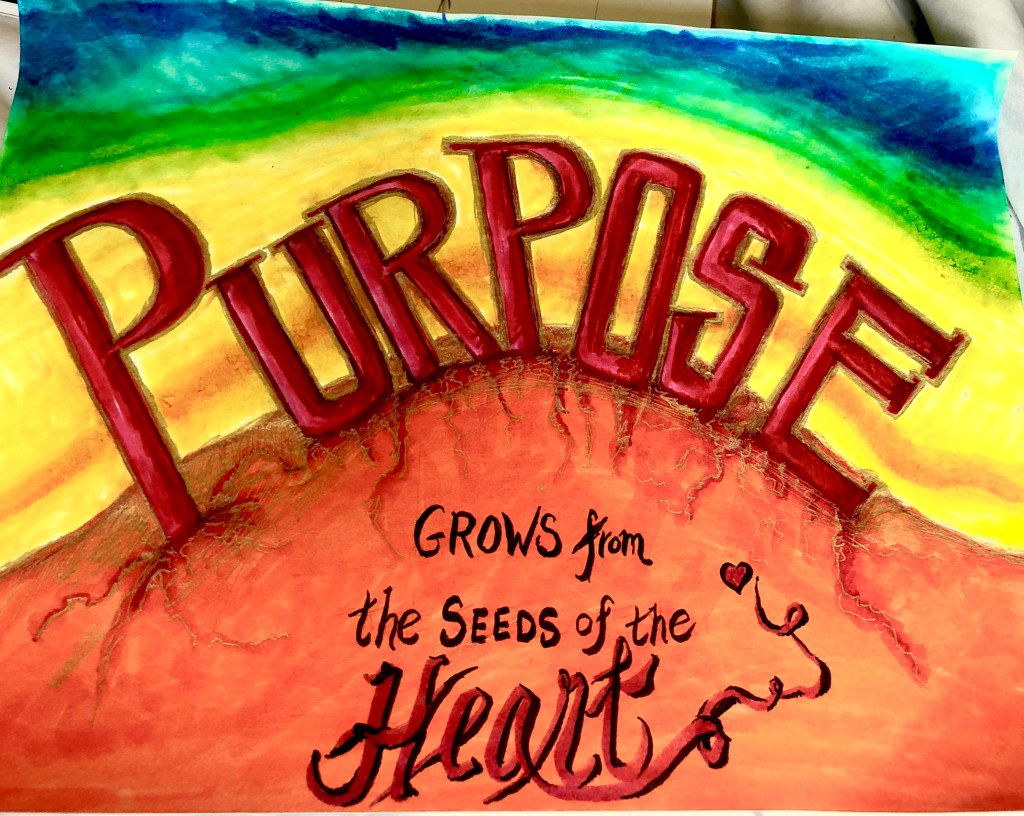 PURPOSE
GROWS from
the SEEDS of the
Heart